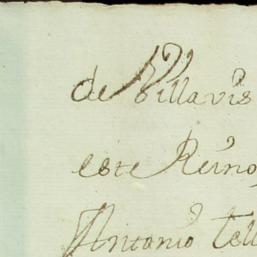 de Villavis
este Reino
Antonio Tell